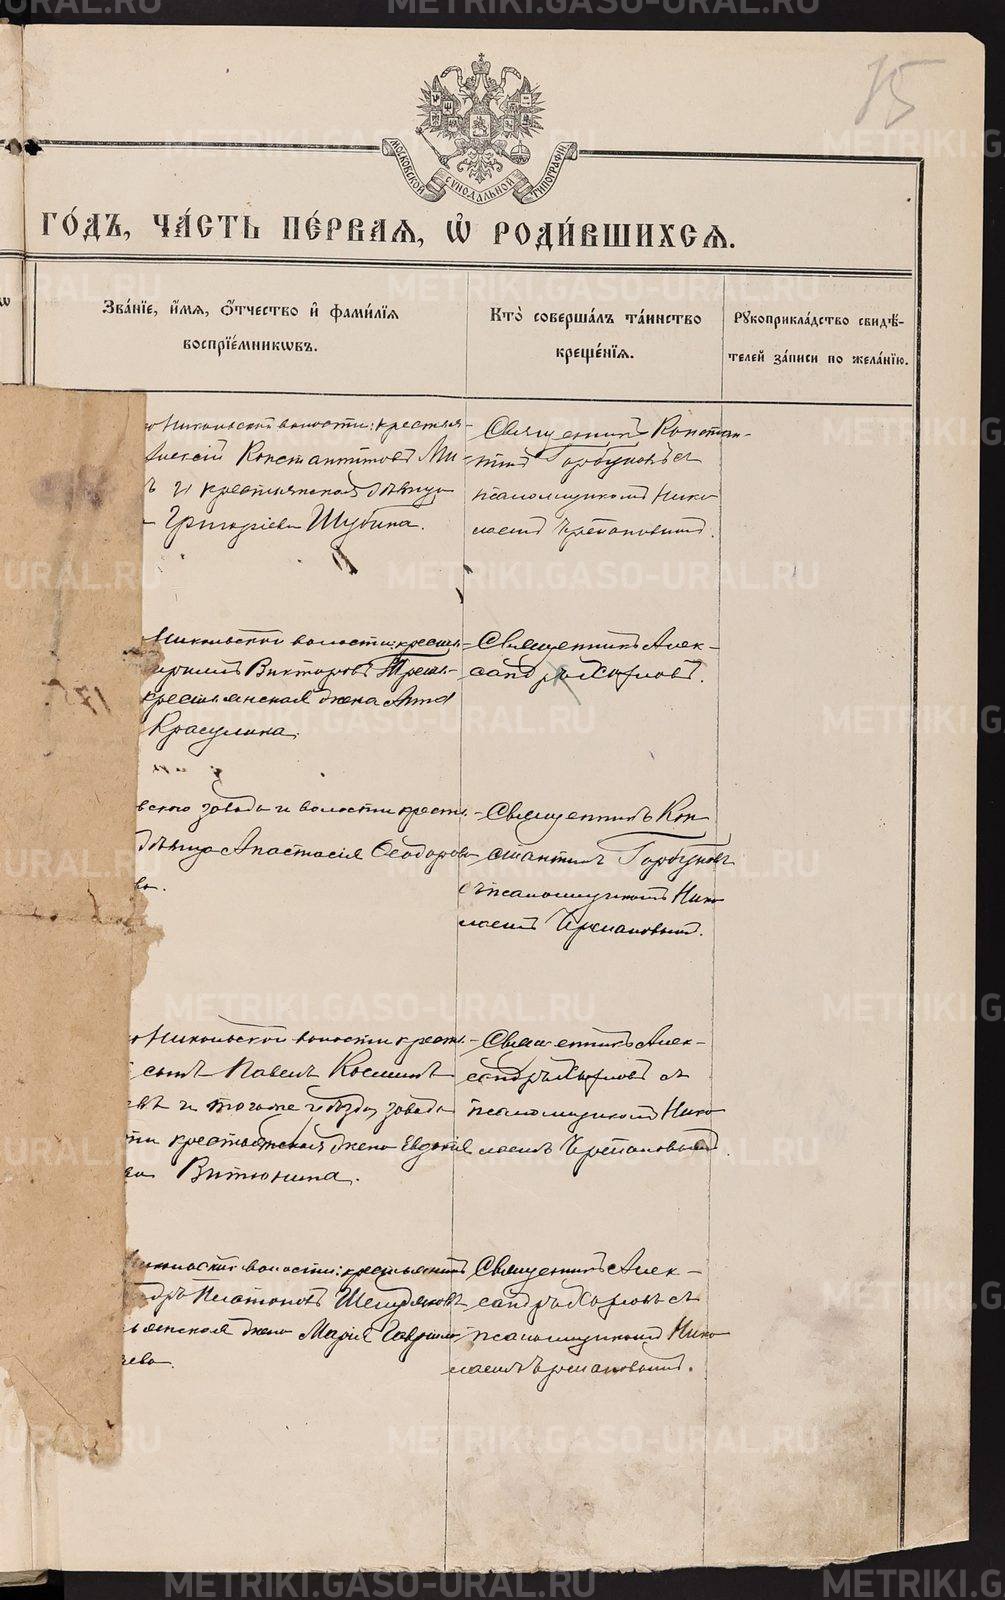 15
МОСКОВСКОЙ СѴНОДАЛЬНОЙ ТИПОГРАФІИ
ГО́ДЪ, ЧА́СТЬ ПЕ́РВАЯ, Ѡ҆ РОДИ́ВШИХСЯ.
Зва́нїе, и҆́мя, ѻ҆́тчество и҆ фами́лїя
воспрїе́мникωвъ.
Кто̀ соверша́лъ та́инство
креще́нїя.
Рꙋкоприкла́дство свидѣ́-
телей за́писи по жела́нїю.
Никольской волости: крестья-
Алексій Константиновъ Ми-
ъ и крестьянская дѣвица
Григоріева Шубина.
Священникъ Констан-
тинъ Горбуновъ съ
псаломщикомъ Нико
лаемъ Чремановымъ.
Никольской волости: крестья-
Викторовъ
крестьянская жена Анна
Красулина.
Священникъ Алек-
сандръ Хохловъ.
вского завода и волости крестья-
дѣвица Анастасія Ѳеодорова
ва.
Священникъ Кон
стантинъ Горбуновъ
съ псаломщикомъ Нико
лаемъ Чремановымъ.
Никольской волости крестья-
сынъ Павелъ Косминъ
евъ и тогоже уѣзда, завода
крестьянская жена Евдокія
ва Витюнина.
Священникъ Алек-
сандръ Хохловъ съ
псаломщикомъ Нико
лаемъ Чремановымъ.
Никольской волости: крестьянинъ
ндръ Платоновъ Шелудяковъ
ьянская жена Марія Гаврило
чева.
Священникъ Алек-
сандръ Хохловъ съ
псаломщикомъ Нико
лаемъ Чремановымъ.
METRIKI.GASO-URAL.RU